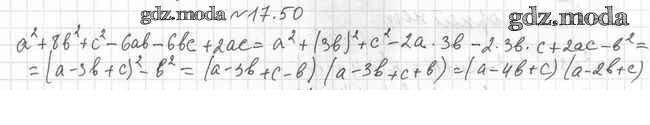 gdz.moda №17.50 gdz.moda
a²+8b²+c²-6ab-6bc+2ac= a²+(3b)²+c²-2a·3b-2·3b·c+2ac-b²=
=(a-3b+c)²-b²=(a-3b+c-b)(a-3b+c+b)=(a-4b+c)(a-2b+c)